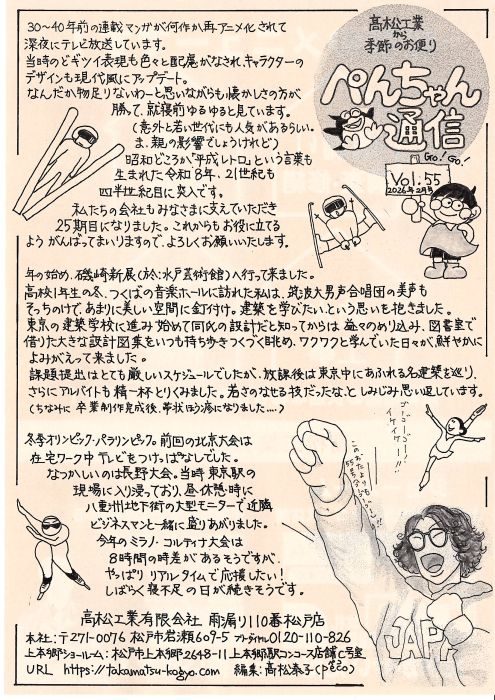 高松工業
から
季節のお便り
ぺんちゃん
通信
GO! GO!
Vol.55
2026年2月号
30~40年前の連載マンガが何作か再アニメ化されて
深夜にテレビ放送しています。
当時のどギツイ表現も色々と配慮がなされ、キャラクターの
デザインも現代風にアップデート。
なんだか物足りないわーと思いながらも懐かしさの方が
勝って、就寝前ゆるゆると見ています。
(意外と若い世代にも人気があるらしい。
ま、親の影響でしょうけれど)
昭和どころか「平成レトロ」という言葉も
生まれた令和8年、21世紀も
四半世紀目に突入です。
私たちの会社もみなさまに支えていただき
25期目になりました。これからもお役に立てる
ようがんばってまいりますので、よろしくお願いいたします。
年の始め、磯崎新展(於:水戸芸術館)へ行って来ました。
高校1年生の冬、つくばの音楽ホールに訪れた私は、筑波大男声合唱団の美声も
そっちのけで、あまりに美しい空間に釘付け。建築を学びたい、という思いを抱きました。
東京の建築学校に進み始めて同氏の設計だと知ってからは益々のめり込み、図書室で
借りた大きな設計図集をいつも持ち歩きつくづく眺め、ワクワクと学んでいた日々が、鮮やかに
よみがえって来ました。
課題提出はとても厳しいスケジュールでしたが、放課後は東京中にあふれる名建築を巡り、
さらにアルバイトも精一杯とりくみました。若さのなせる技だったな、としみじみ思い返しています。
(ちなみに卒業制作完成後、帯状ほう疹になりました....)
冬季オリンピック・パラリンピック。前回の北京大会は
在宅ワーク中テレビをつけっぱなしでした。
なつかしいのは長野大会。当時東京駅の
現場に入り浸っており、昼休憩時に
八重洲地下街の大型モニターで近隣
ビジネスマンと一緒に盛りあがりました。
今年のミラノ・コルティナ大会は
8時間の時差があるそうですが、
やっぱりリアルタイムで応援したい!
しばらく寝不足の日が続きそうです。
ゴーゴーゴー!
イケイケー!!
JAPA
高松工業有限会社 雨漏り110番松戸店
本社:〒271-0076 松戸市岩瀬609-5 フリーダイヤル0120-110-826
上本郷ショールーム:松戸市上本郷2648-11 上本郷駅コンコース店舗七号室
URL https://takamatsu-kogyo.com 編集:高松泰子(peco)